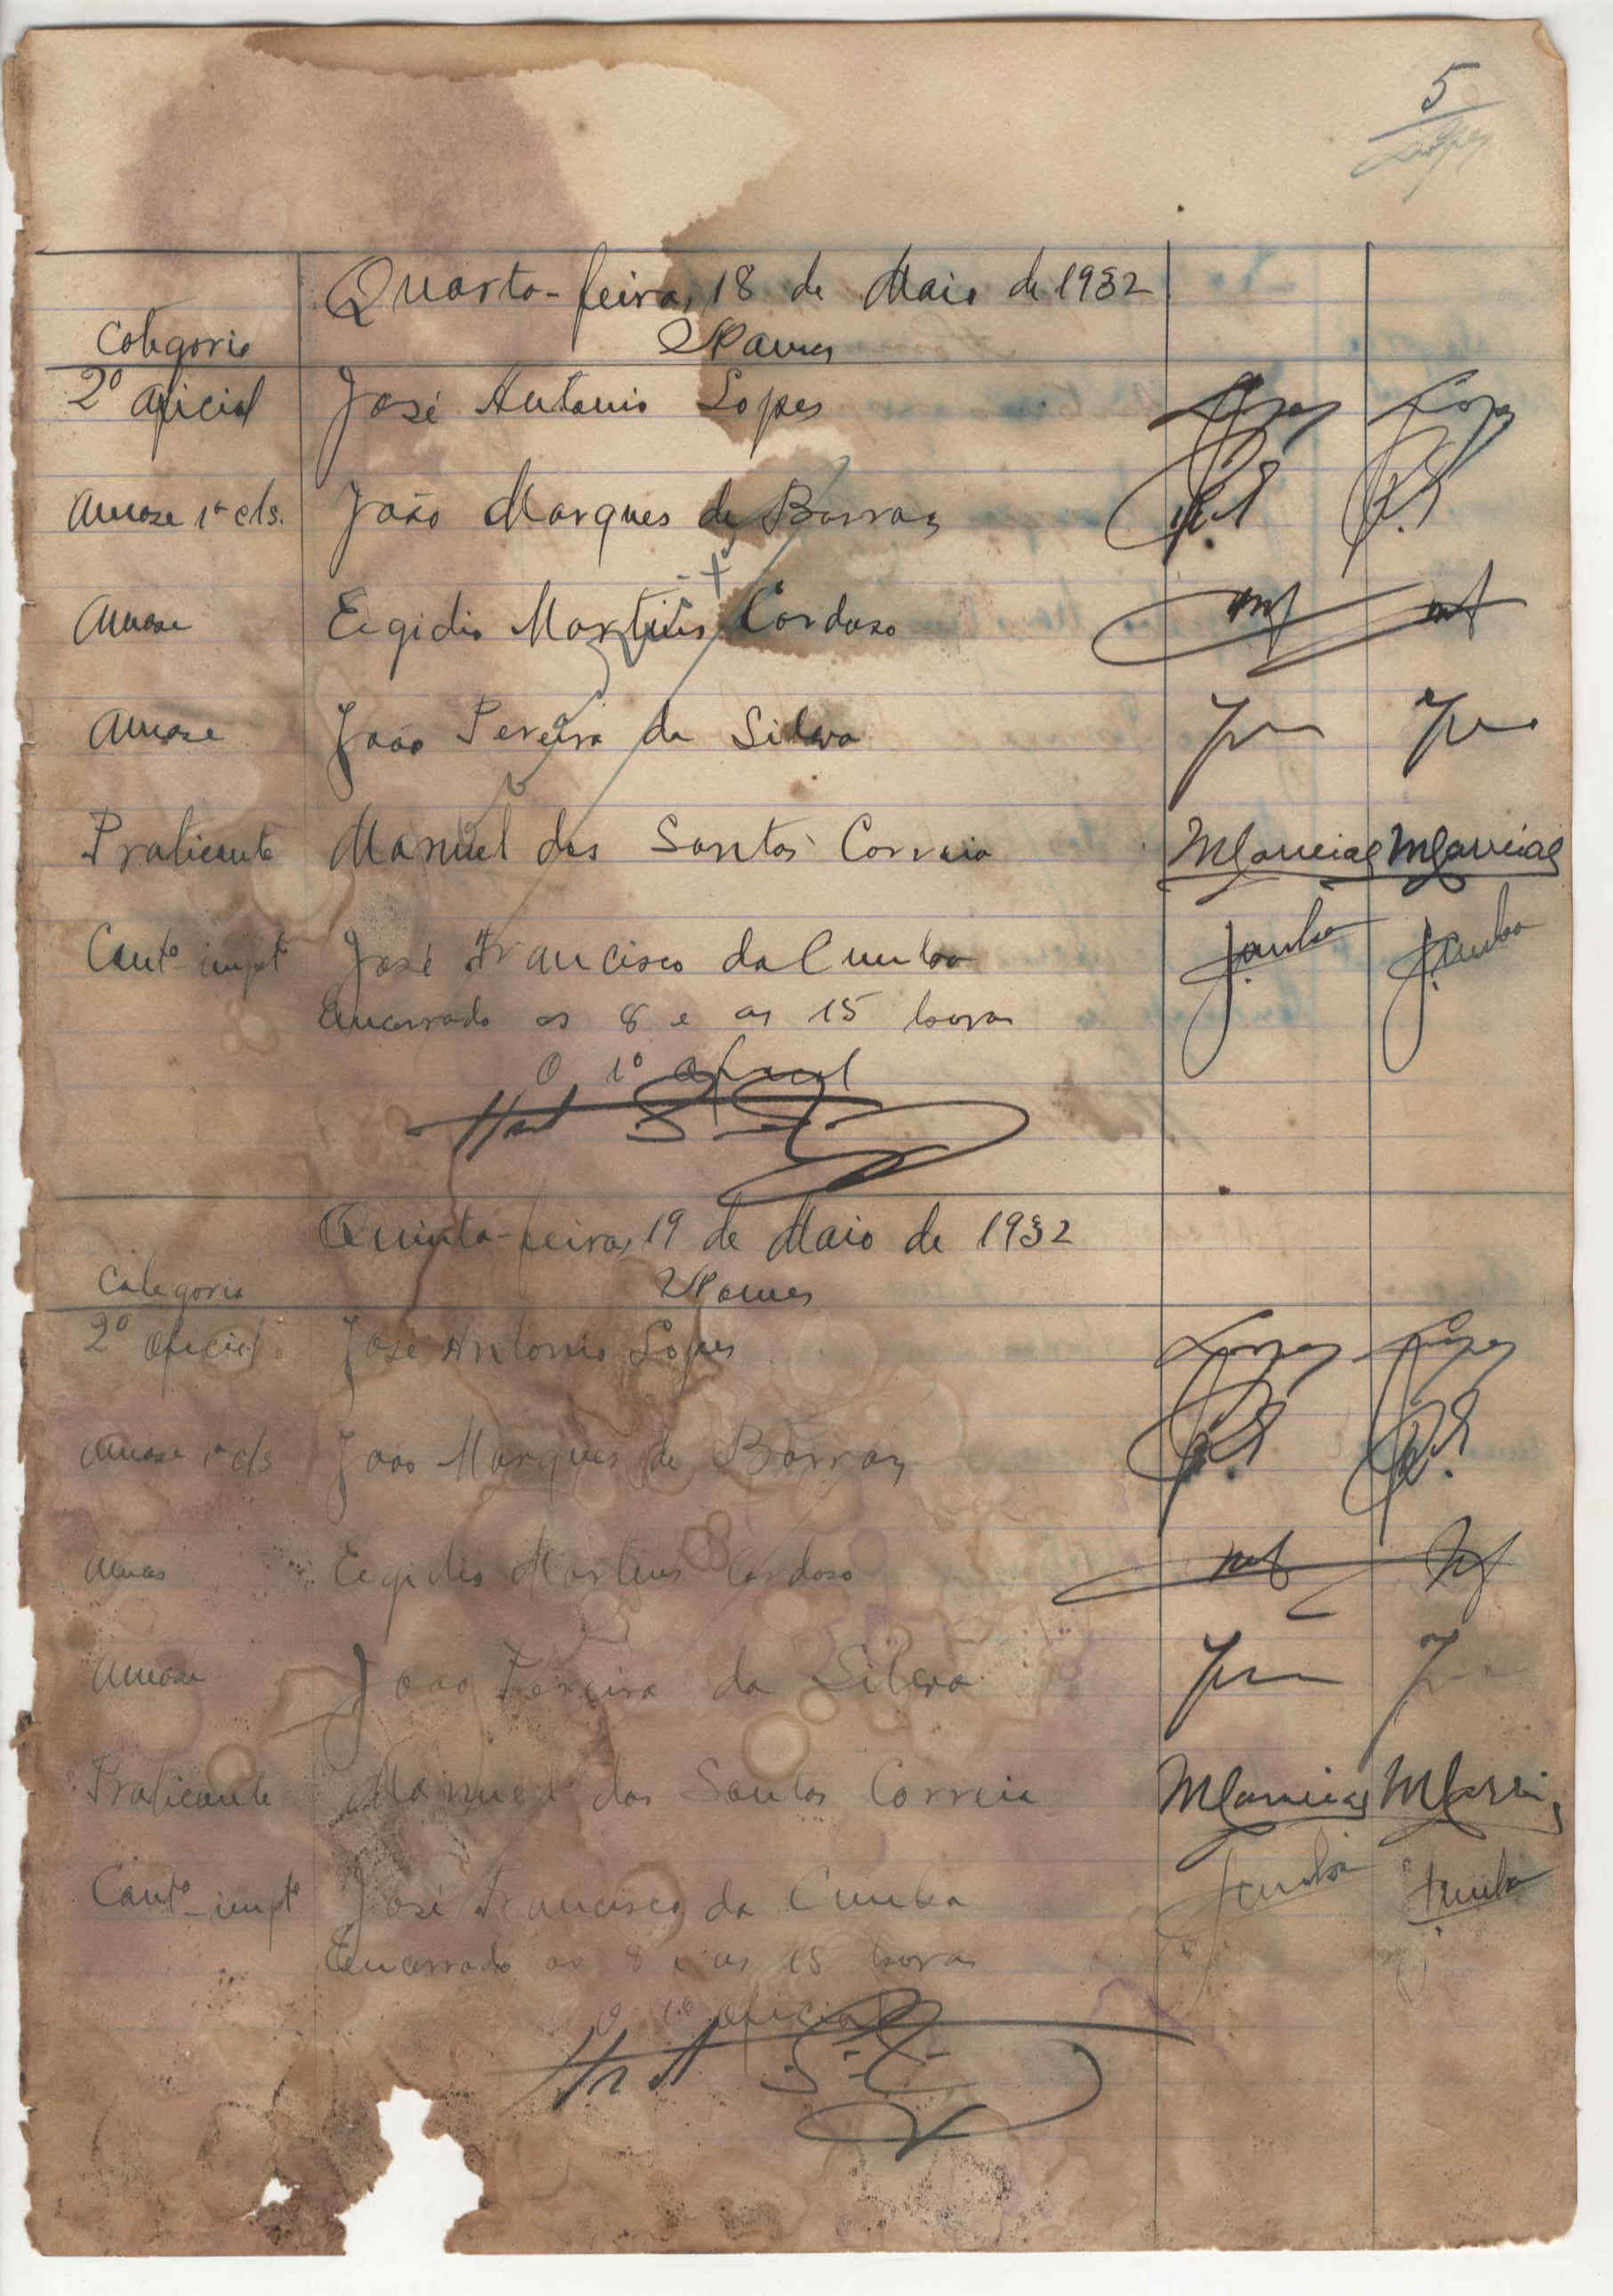 5
Lopes
Quarta-feira, 18 de Maio de 1932
Categoria Nomes
2º oficial José Antonio Lopes Lopes Lopes
1ª cls. João Marques de Barros
Egidio Martins Cardoso
João Pereira da Silva
Praticante Manuel dos Santos Correia MCorreia MCorreia
Cantº impt José Francisco da Cunha JCunha J.Cunha
Encerrado as 8 e as 15 horas
O 1º oficial
Quinta-feira, 19 de Maio de 1932
Categoria Nomes
2º oficial José Antonio Lopes Lopes Lopes
1ª cls João Marques de Barros
Egidio Martins Cardoso
João Pereira da Silva
Praticante Manuel dos Santos Correia MCorreia MCorreia
Cantº impt José Francisco da Cunha JCunha JCunha
Encerrado as 8 e as 15 horas
O 1º oficial